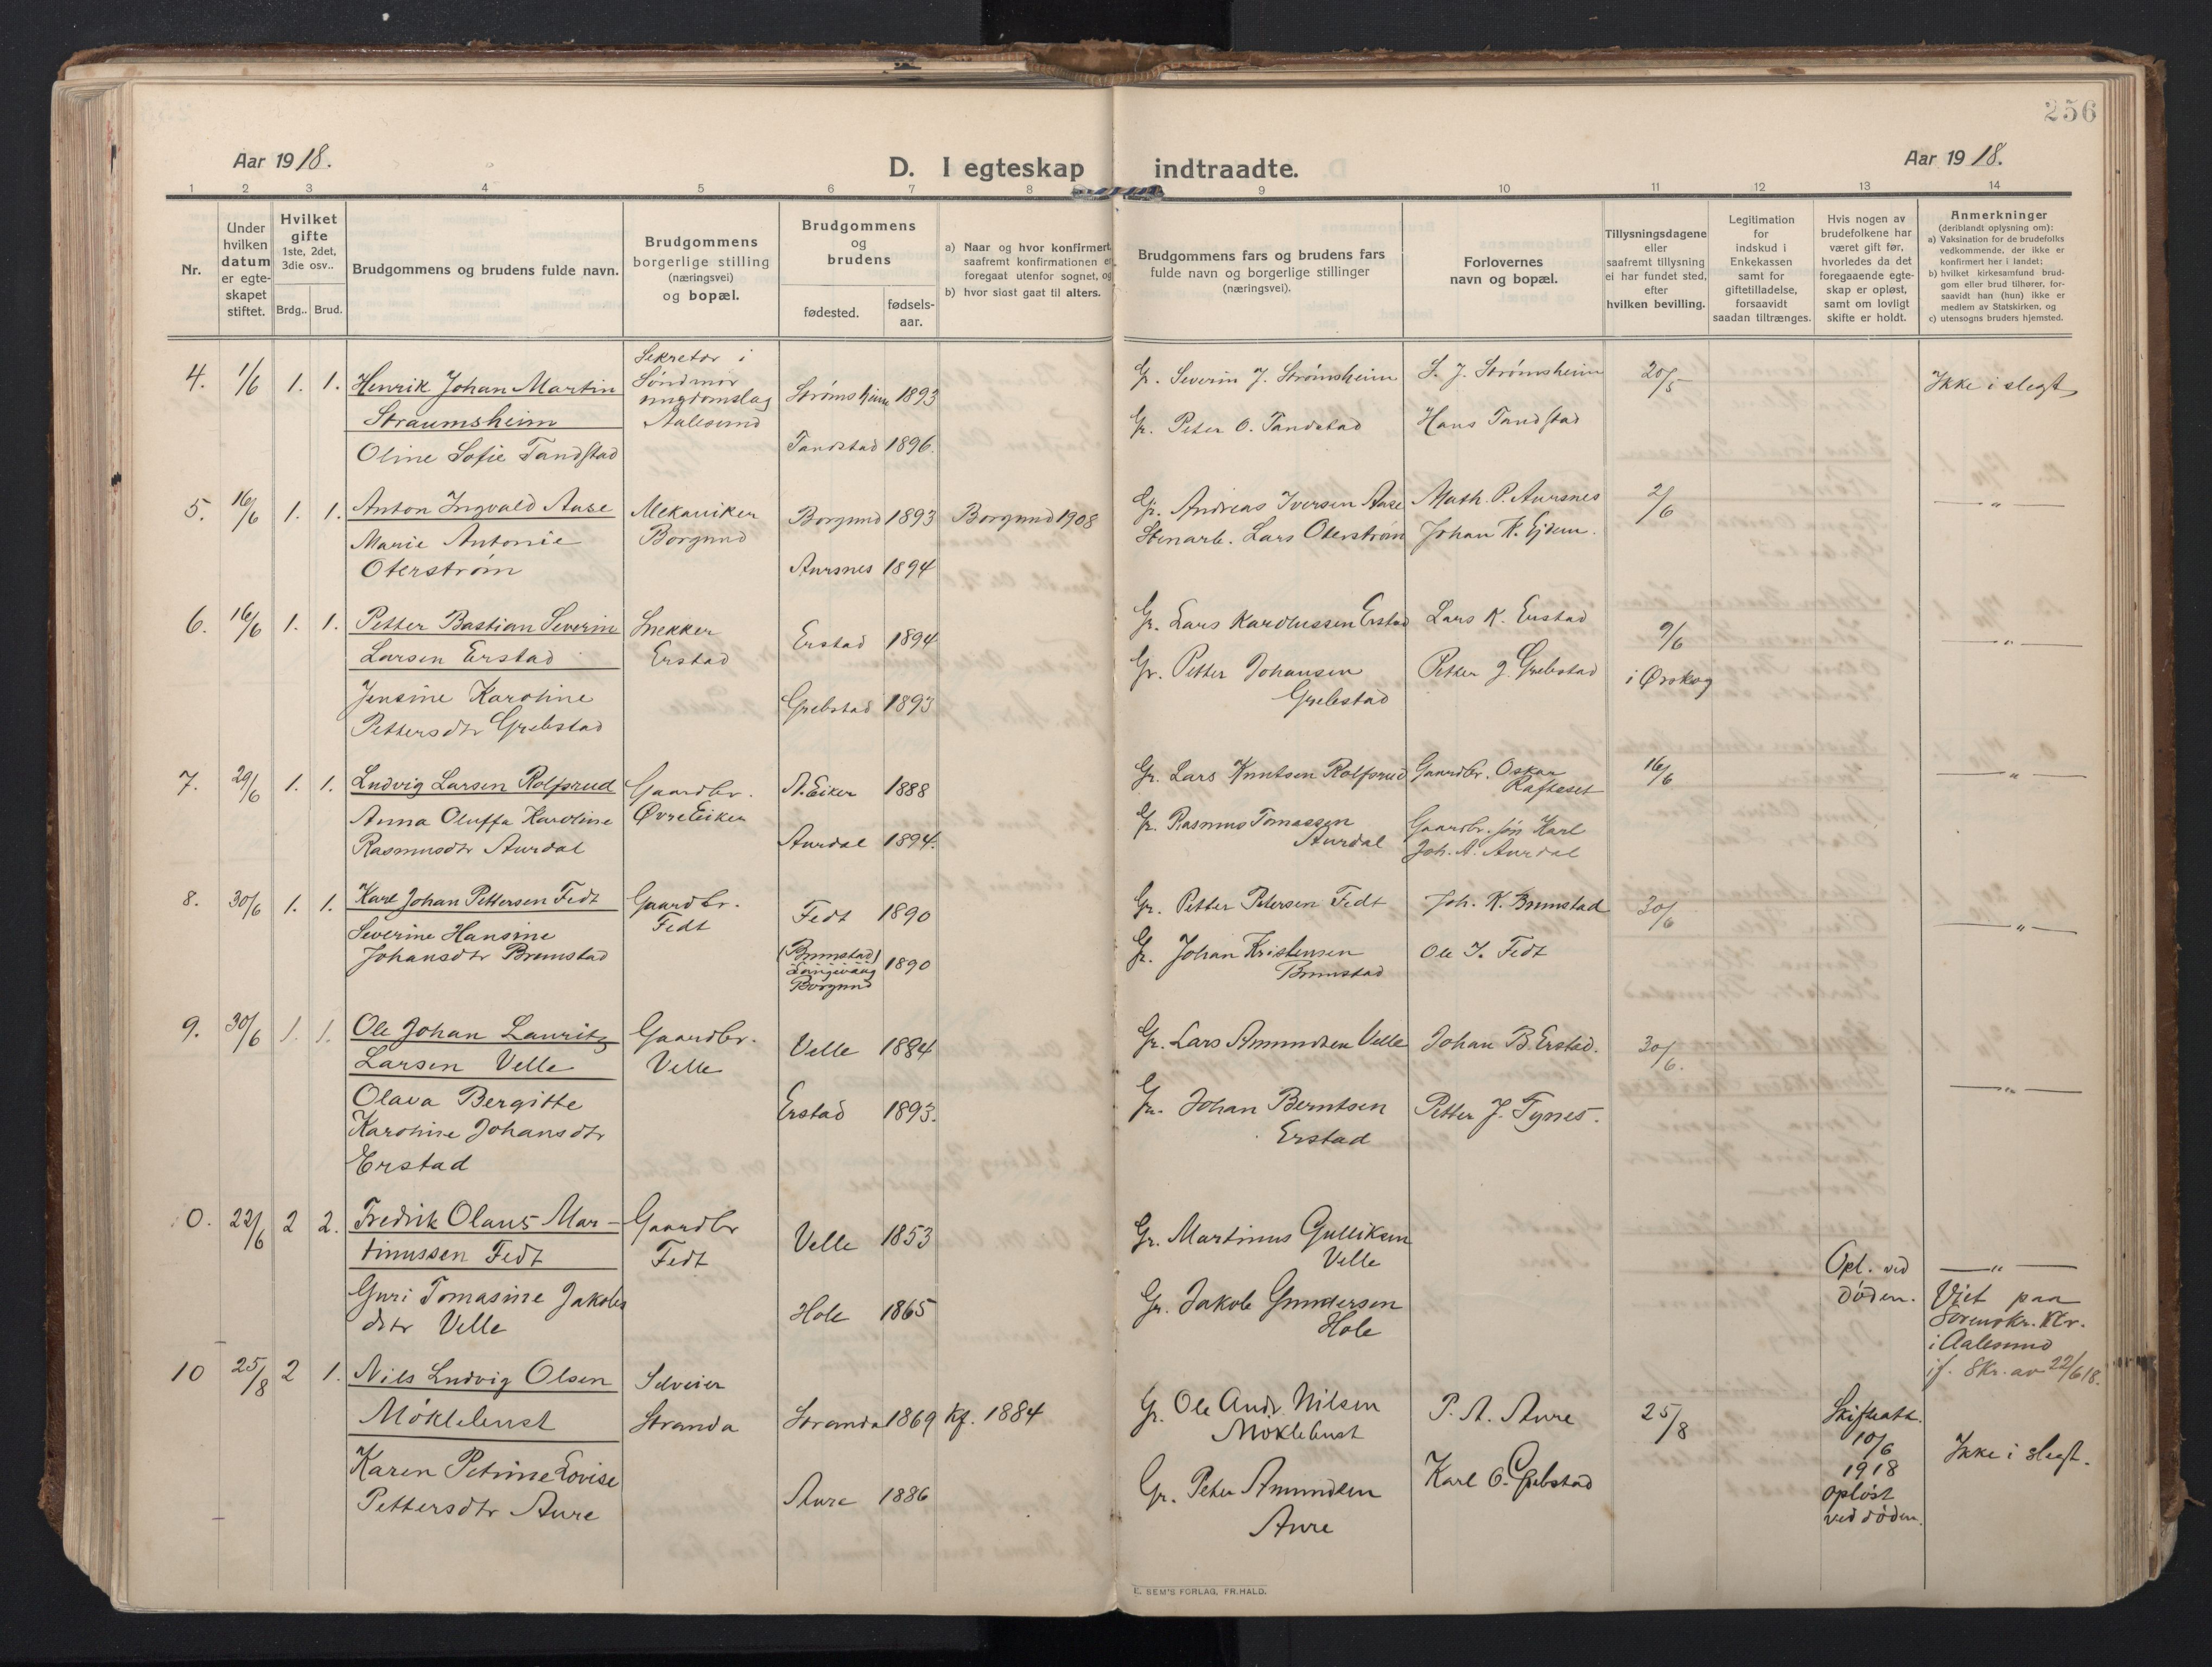 256
Aar 1918.
D. I egteskap indtraadte.
Aar 1918.
1 2 3 4 5 6 7 8 9 10 11 12 13 14
Nr.
Under hvilken datum er egteskapet stiftet.
Hvilket gifte
1ste, 2det, 3die osv..
Brdg.. Brud.
Brudgommens og brudens fulde navn.
Brudgommens borgerlige stilling (næringsvei) og bopæl.
Brudgommens og brudens
fødested.
fødselsaar.
a) Naar og hvor konfirmert, saafremt konfirmationen er foregaat utenfor sognet, og
b) hvor sidst gaat til alters.
Brudgommens fars og brudens fars fulde navn og borgerlige stillinger (næringsvei).
Forlovernes navn og bopæl.
Tillysningsdagene eller saafremt tillysning ei har fundet sted, efter hvilken bevilling.
Legitimation for indskud i Enkekassen samt for giftetilladelse, forsaavidt saadan tiltrænges.
Hvis nogen av brudefolkene har været gift før, hvorledes da det foregaaende egteskap er opløst, samt om lovligt skifte er holdt.
Anmerkninger
(deriblandt oplysning om):
a) Vaksination for de brudefolks vedkommende, der ikke er konfirmert her i landet;
b) hvilket kirkesamfund brudgom eller brud tilhører, forsaavidt han (hun) ikke er medlem av Statskirken, og
c) utensogns bruders hjemsted.
4. 1/6 1. 1. Henrik Johan Martin
Straumsheim
Oline Sofie Tandstad
Sekretær i
Søndmør
ungdomslag
Aalesund
Strømsheim 1893
Tandstad 1896.
Gr. Severin J. Strømsheim
Gr. Peter O. Tandstad
S. J. Strømsheim
Hans Tandstad
20/5
Ikke i slegt
5. 16/6 1. 1. Anton Ingvald Aase
Marie Antonie
Oterstrøm
Mekaniker
Borgund
Borgund 1893
Aursnes 1894
Borgund 1908
Gr. Andreas Iversen Aase
Stenarb. Lars Oterstrøm
Math. P. Aursnes
Johan K. Ejdem.
2/6
— " —
6. 16/6 1. 1. Petter Bastian Severin
Larsen Erstad
Jensine Karoline
Pettersdtr Grebstad
Snekker
Erstad
Erstad 1894
Grebstad 1893
Gr. Lars Karolussen Erstad
Gr. Petter Johansen
Grebstad
Lars K. Erstad
Petter J. Grebstad
9/6
i Ørskog
— " —
7. 29/6 1. 1. Ludvig Larsen Rolfsrud
Anna Oluffa Karoline
Rasmusdtr Aurdal
Gaardbr.
Øvre Eiker
N. Eiker 1888
Aurdal 1894.
Gr. Lars Knutsen Rolfsrud
Gr. Rasmus Tomassen
Aurdal
Gaardbr. Oskar
Rafteset
Gaardbr. søn Karl
Joh. A. Aurdal
16/6
— " —
8. 30/6 1. 1. Karl Johan Pettersen Fedt
Severine Hansine
Johansdtr Brunstad
Gaardbr.
Fedt
Fedt 1890
(Brunstad)
Langevaag
Borgund
1890
Gr. Petter Petersen Fedt
Gr. Johan Kristensen
Brunstad
Joh. K. Brunstad
Ole J. Fedt
30/6
— " —
9. 30/6 1. 1. Ole Johan Lauritz
Larsen Velle
Olava Bergitte
Karoline Johansdtr
Erstad
Gaardbr.
Velle
Velle 1884
Erstad 1893.
Gr. Lars Amundsen Velle
Gr. Johan Berntsen
Erstad
Johan B. Erstad.
Petter J. Tynes.
30/6.
— " —
0. 22/6 2 2. Fredrik Olaus Mar-
tinussen Fedt
Guri Tomasine Jakobs
dtr Velle
Gaardbr
Fedt
Velle 1853
Hole 1865
Gr. Martinus Gulliksen
Velle
Gr. Jakob Gundersen
Hole
Opl. ved
døden.
— " —
Viet paa
Sorenskr. Ktr.
i Aalesund
if. Skr. av 22/6 18.
10 25/8 2 1. Nils Ludvig Olsen
Møklebust
Karen Petrine Lovise
Pettersdtr Aure
Selveier
Stranda
Stranda 1869
Aure 1886
Kf. 1884
Gr. Ole Andr. Nilsen
Møklebust
Gr. Peter Amundsen
Aure
P. A. Aure
Karl O. Grebstad
25/8
Skifteatt.
10/6
1918
opløst
ved døden.
Ikke i slegt.
E. SEM'S FORLAG, FR.HALD.